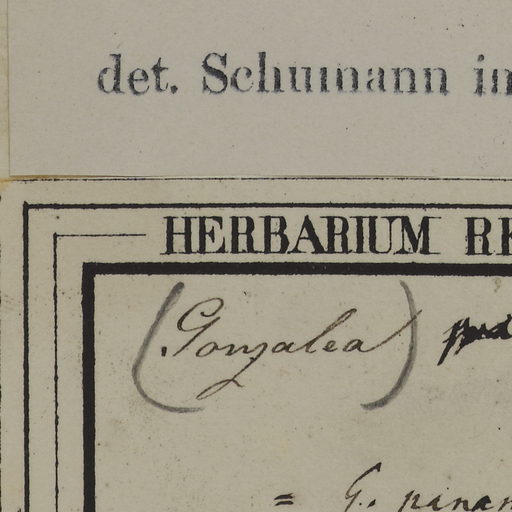 det. Schumann in
HERBARIUM RE
(Gonzalea)
= G. panam